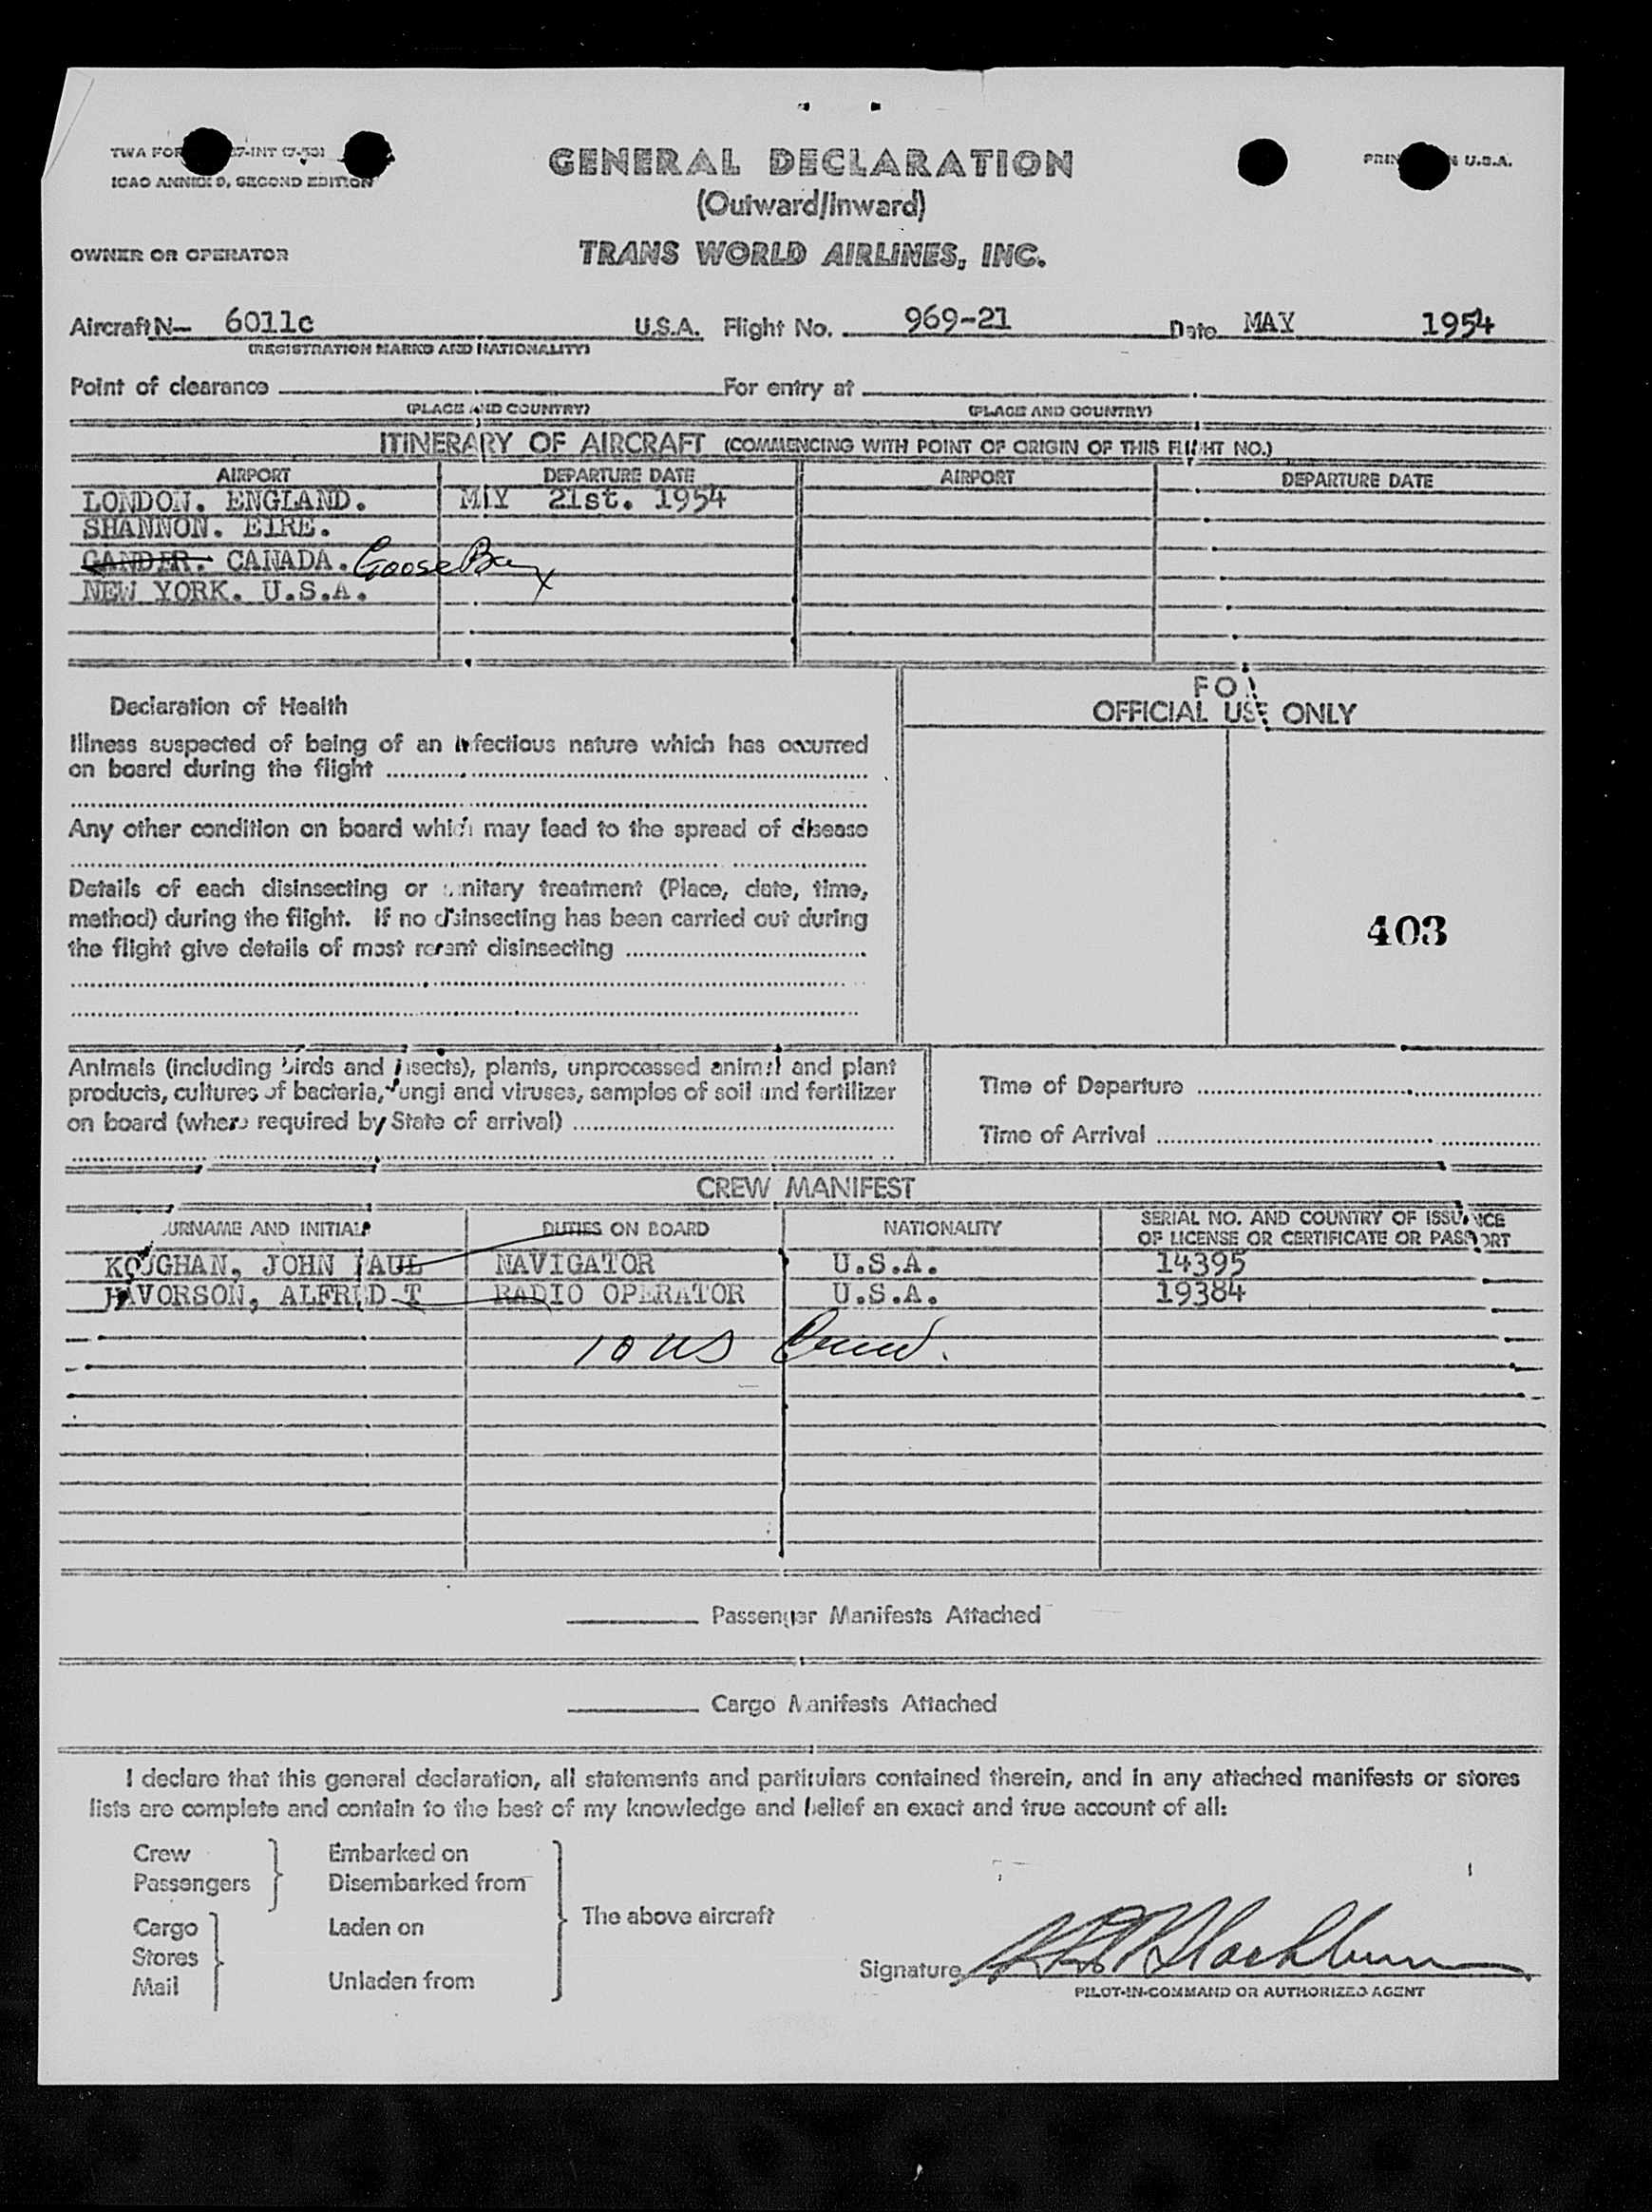 TWA FOR 7-INT (7-53)
PRIN N U.S.A.
ICAO ANNEX 9, SECOND EDITION
GENERAL DECLARATION
(Outward/Inward)
OWNER OR OPERATOR TRANS WORLD AIRLINES, INC.
Aircraft N— 6011c U.S.A. Flight No. 969-21 Date MAY 1954
(REGISTRATION MARKS AND NATIONALITY)
Point of clearance For entry at
(PLACE AND COUNTRY) (PLACE AND COUNTRY)
ITINERARY OF AIRCRAFT (COMMENCING WITH POINT OF ORIGIN OF THIS FLIGHT NO.)
AIRPORT DEPARTURE DATE AIRPORT DEPARTURE DATE
LONDON. ENGLAND. MAY 21st. 1954
SHANNON. EIRE.
GANDER. CANADA. Goose Bay
NEW YORK. U.S.A.
FOR
OFFICIAL USE ONLY
403
Declaration of Health
Illness suspected of being of an infectious nature which has occurred
on board during the flight
Any other condition on board which may lead to the spread of disease
Details of each disinsecting or sanitary treatment (Place, date, time,
method) during the flight. If no disinsecting has been carried out during
the flight give details of most recent disinsecting
Animals (including birds and insects), plants, unprocessed animal and plant
products, cultures of bacteria, fungi and viruses, samples of soil and fertilizer
on board (where required by State of arrival)
Time of Departure
Time of Arrival
CREW MANIFEST
SURNAME AND INITIALS DUTIES ON BOARD NATIONALITY SERIAL NO. AND COUNTRY OF ISSUANCE
OF LICENSE OR CERTIFICATE OR PASSPORT
KOUGHAN, JOHN PAUL NAVIGATOR U.S.A. 14395
HAVORSON, ALFRED T RADIO OPERATOR U.S.A. 19384
10 US
Passenger Manifests Attached
Cargo Manifests Attached
I declare that this general declaration, all statements and particulars contained therein, and in any attached manifests or stores
lists are complete and contain to the best of my knowledge and belief an exact and true account of all:
Crew Embarked on
Passengers Disembarked from
The above aircraft
Cargo Laden on
Stores
Mail Unladen from
Signature Blackburn
PILOT-IN-COMMAND OR AUTHORIZED AGENT